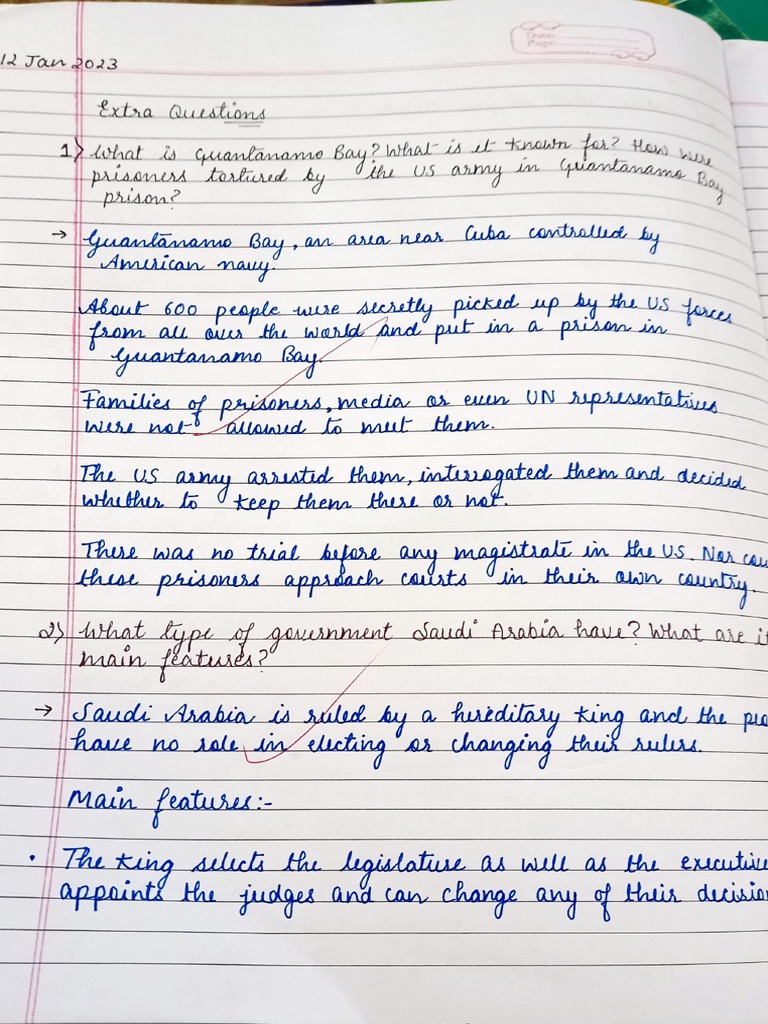 Date:
Page:
12 Jan 2023
Extra Questions
1) What is Guantanamo Bay? What is it known for? How were
prisoners tortured by the US army in Guantanamo Bay
prison?
→ Guantānamo Bay, an area near Cuba controlled by
American navy.
About 600 people were secretly picked up by the US forces
from all over the world and put in a prison in
Guantanamo Bay.
Families of prisoners, media or even UN representatives
were not allowed to meet them.
The US army arrested them, interrogated them and decided
whether to keep them there or not.
There was no trial before any magistrate in the US. Nor cou
these prisoners approach courts in their own country.
2) What type of government Saudi Arabia have? What are it
main features?
→ Saudi Arabia is ruled by a hereditary king and the peo
have no role in electing or changing their rulers.
Main features:-
• The king selects the legislature as well as the executive
appoints the judges and can change any of their decision